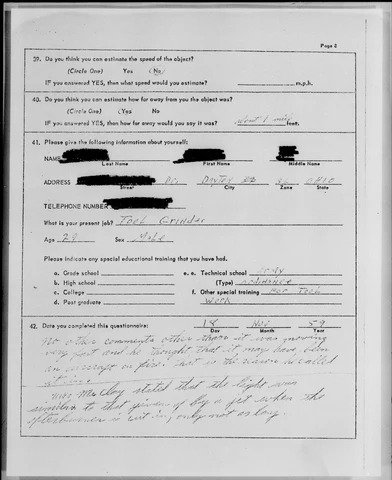 Page 8
39. Do you think you can estimate the speed of the object?
(Circle One) Yes (No)
IF you answered YES, then what speed would you estimate? m.p.h.
40. Do you think you can estimate how far away from you the object was?
(Circle One) (Yes No
IF you answered YES, then how far away would you say it was? about 1 mile feet.
41. Please give the following information about yourself:
NAME
Last Name First Name Middle Name
ADDRESS Dr. Dayton OHIO
Street City Zone State
TELEPHONE NUMBER
What is your present job? Tool Grinder
Age 29 Sex Male
Please indicate any special educational training that you have had.
a. Grade school e. Technical school Army
b. High school (Type)
c. College f. Other special training For Tool
d. Post graduate Work
42. Date you completed this questionnaire: 18 Nov 59
Day Month Year
No other comments other than it was moving
very fast and he thought that it may have been
an aircraft on fire. that is the reason he called
it in.
stated that the light was
similar to that given of by a jet when the
afterburner is cut in, only not as long.